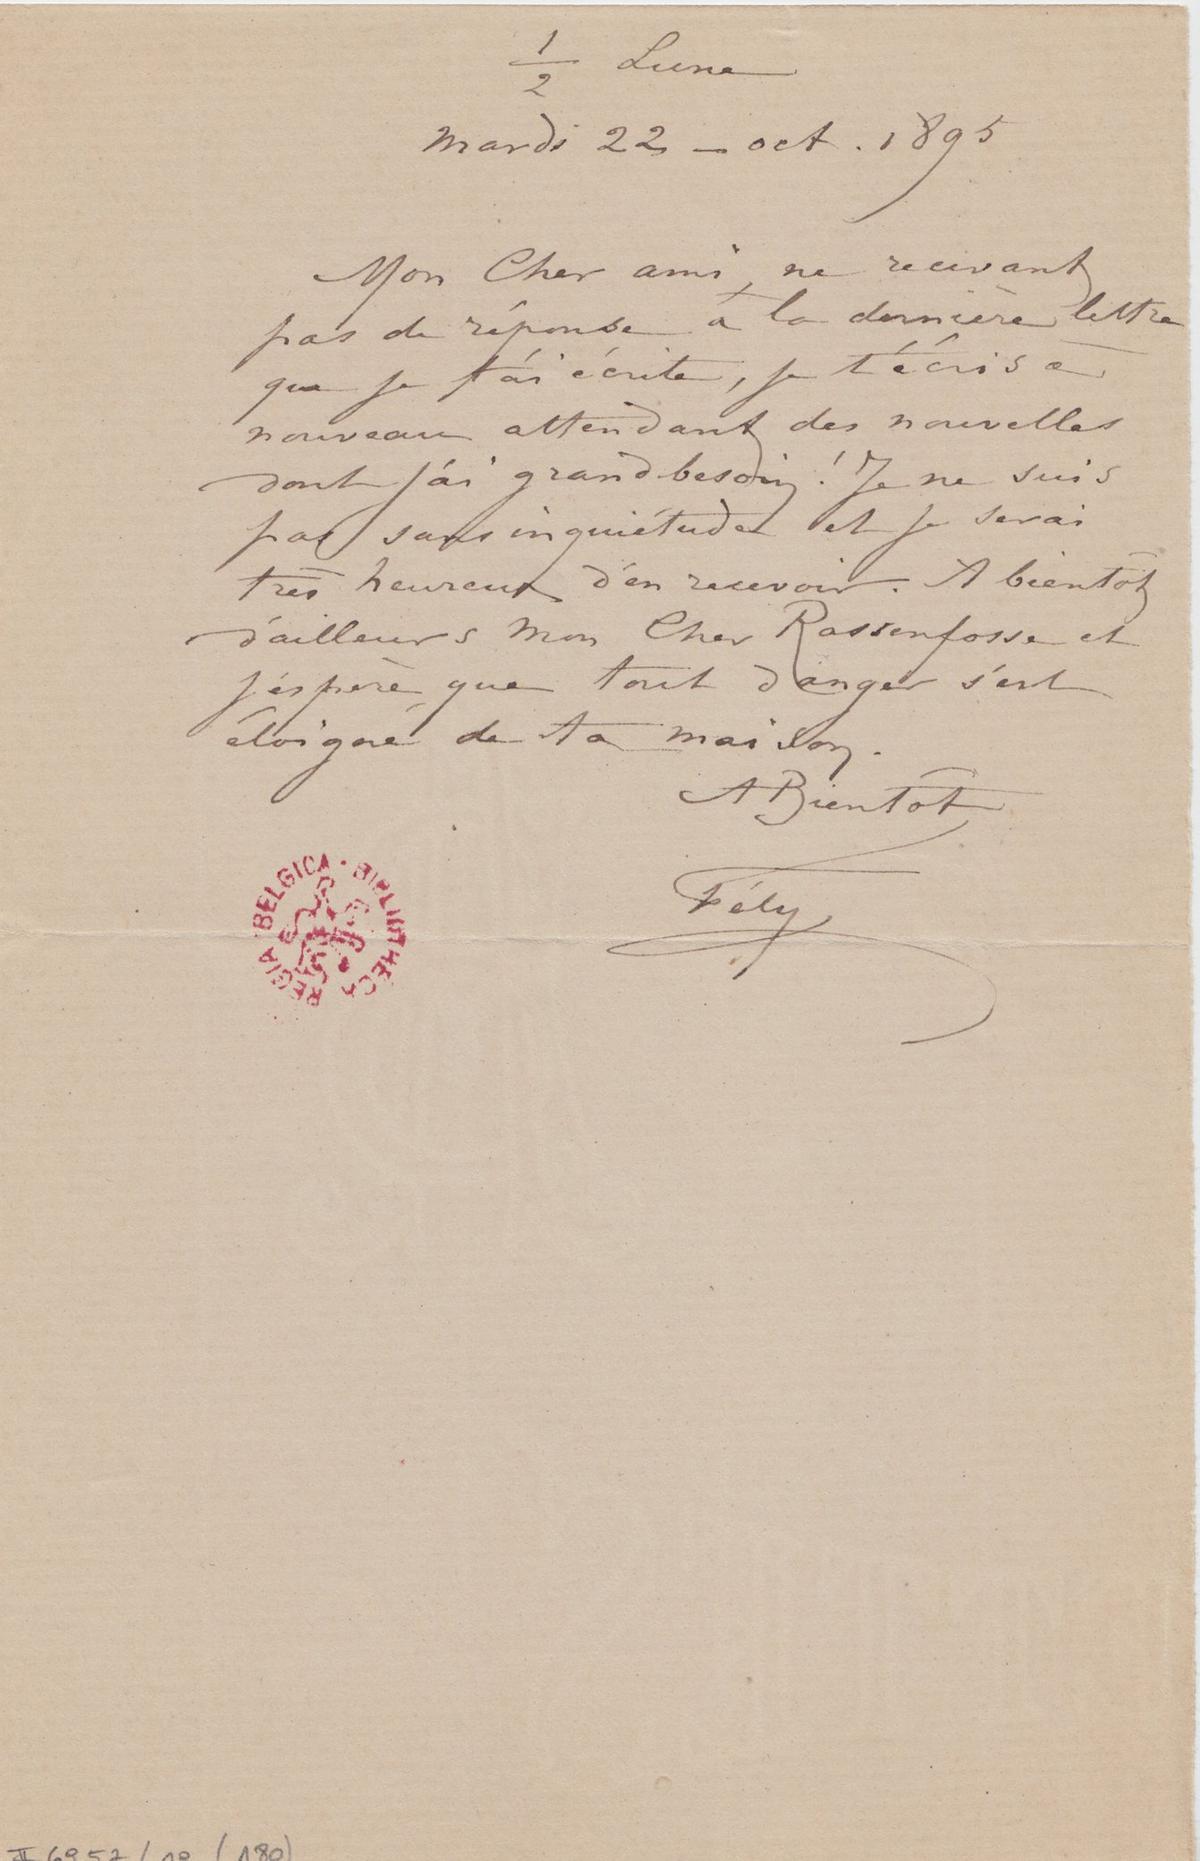 1/2 Lune
mardi 22 - oct. 1895
Mon Cher ami, ne recevant
pas de réponse à la dernière lettre
que je t'ai écrite, je t'écris à
nouveau attendant des nouvelles
dont j'ai grand besoin! Je ne suis
pas sans inquiétudes et je serai
très heureux d'en recevoir. A bientôt
d'ailleurs Mon Cher Rassenfosse et
j'espère que tout danger s'est
éloigné de ta maison.
A Bientôt
Fély
BIBLIOTHECA REGIA BELGICA
II 6957/19 (180)